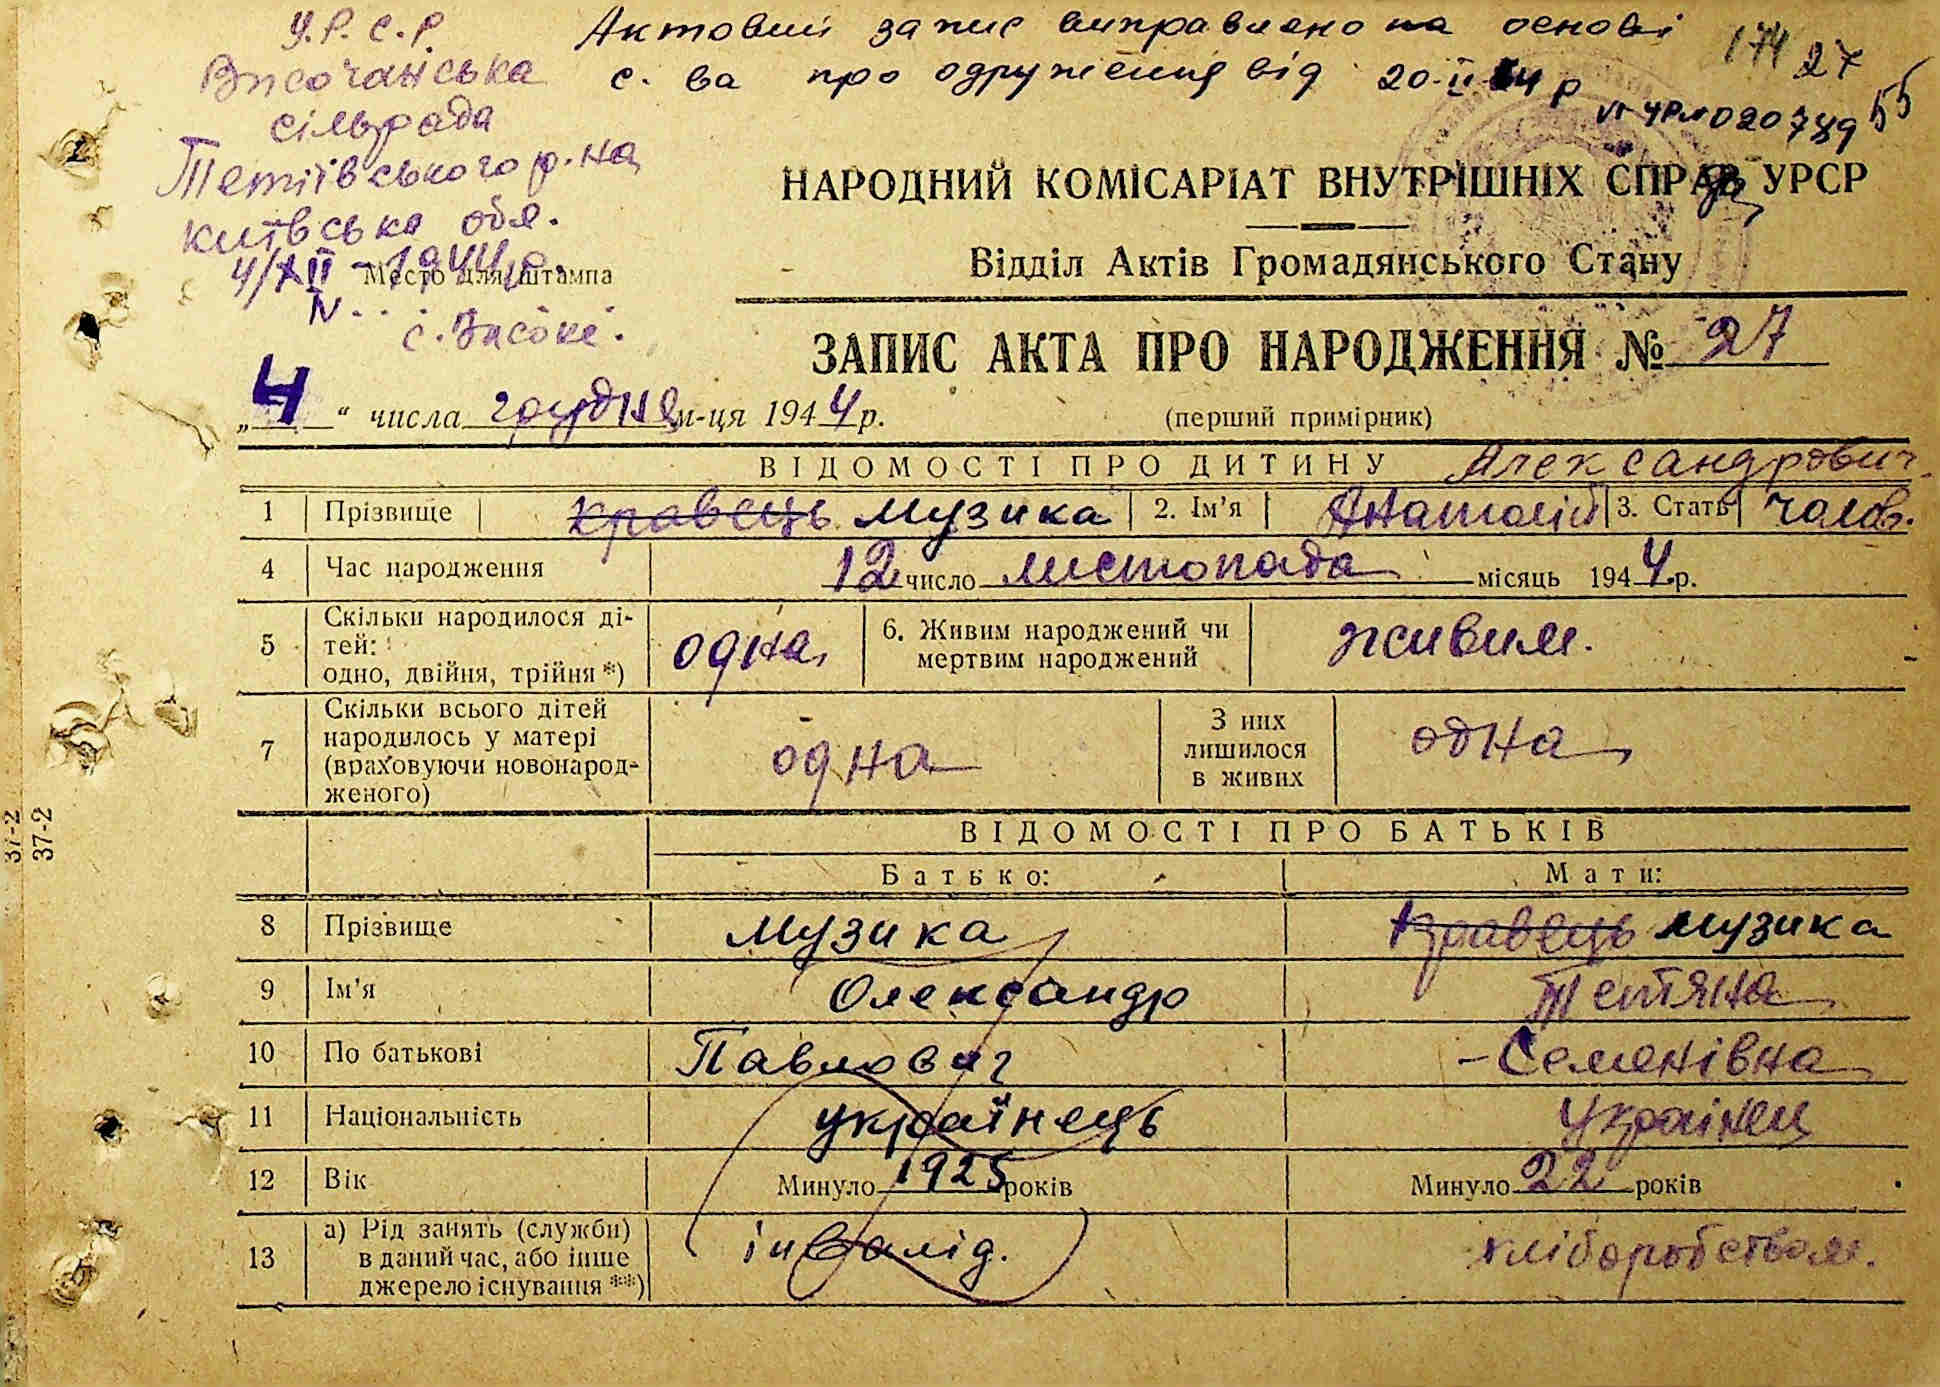 У.Р.С.Р. Актовий запис виправлено на основі 174 27
Височанська с. ва про одруження від 20.II 64 р 55
сільрада УР № 020789
Тетіївського р-на
Київська обл.
4/XII - 1944 р.
Место для штампа
IV. . .
с. Високе.
НАРОДНИЙ КОМІСАРІАТ ВНУТРІШНІХ СПРАВ УРСР
Відділ Актів Громадянського Стану
ЗАПИС АКТА ПРО НАРОДЖЕННЯ № 27
„4“ числа грудня м-ця 1944 р. (перший примірник)
ВІДОМОСТІ ПРО ДИТИНУ Александрович
1 Прізвище Кравець Музика 2. Ім’я Анатолій 3. Стать чолов.
4 Час народження 12 число листопада місяць 1944 р.
5 Скільки народилося ді-
тей:
одно, двійня, трійня *) одна 6. Живим народжений чи
мертвим народжений живим.
7 Скільки всього дітей
народилось у матері
(враховуючи новонарод-
женого) одна З них
лишилося
в живих одна
37-2
37-2
ВІДОМОСТІ ПРО БАТЬКІВ
Батько: Мати:
8 Прізвище Музика Кравець Музика
9 Ім’я Олександр Тетяна
10 По батькові Павлович - Семенівна
11 Національність українець Українец
12 Вік Минуло 1925 років Минуло 22 років
13 а) Рід занять (служби)
в даний час, або інше
джерело існування **) інвалід. хліборобством.